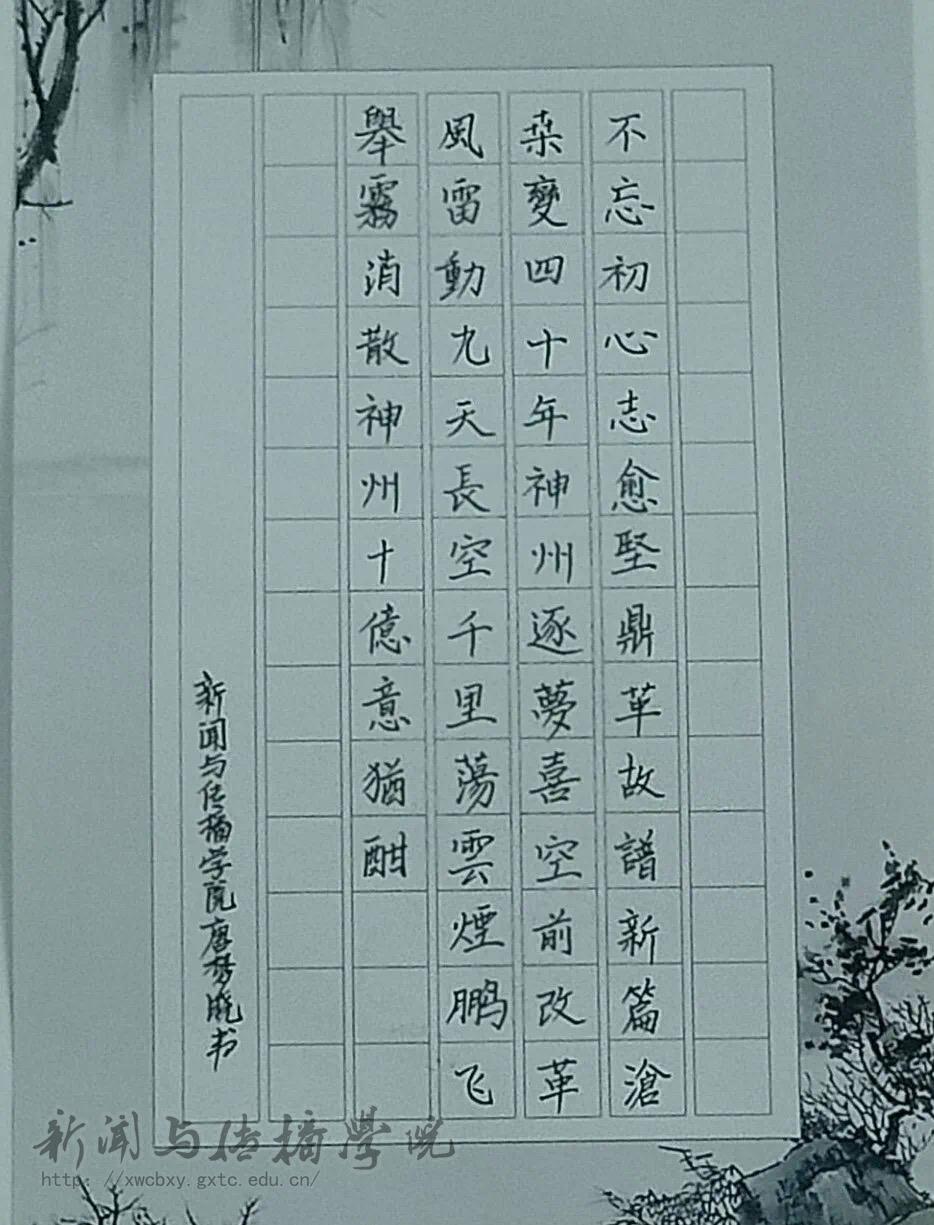 不忘初心志愈堅鼎革故譜新篇滄
桑變四十年神州逐夢喜空前改革
風雷動九天長空千里蕩雲煙鹏飞
舉霧消散神州十億意猶酣
新闻与传播学院唐梦晓书
新闻与传播學院
http: //xwcbxy.gxtc.edu.cn/